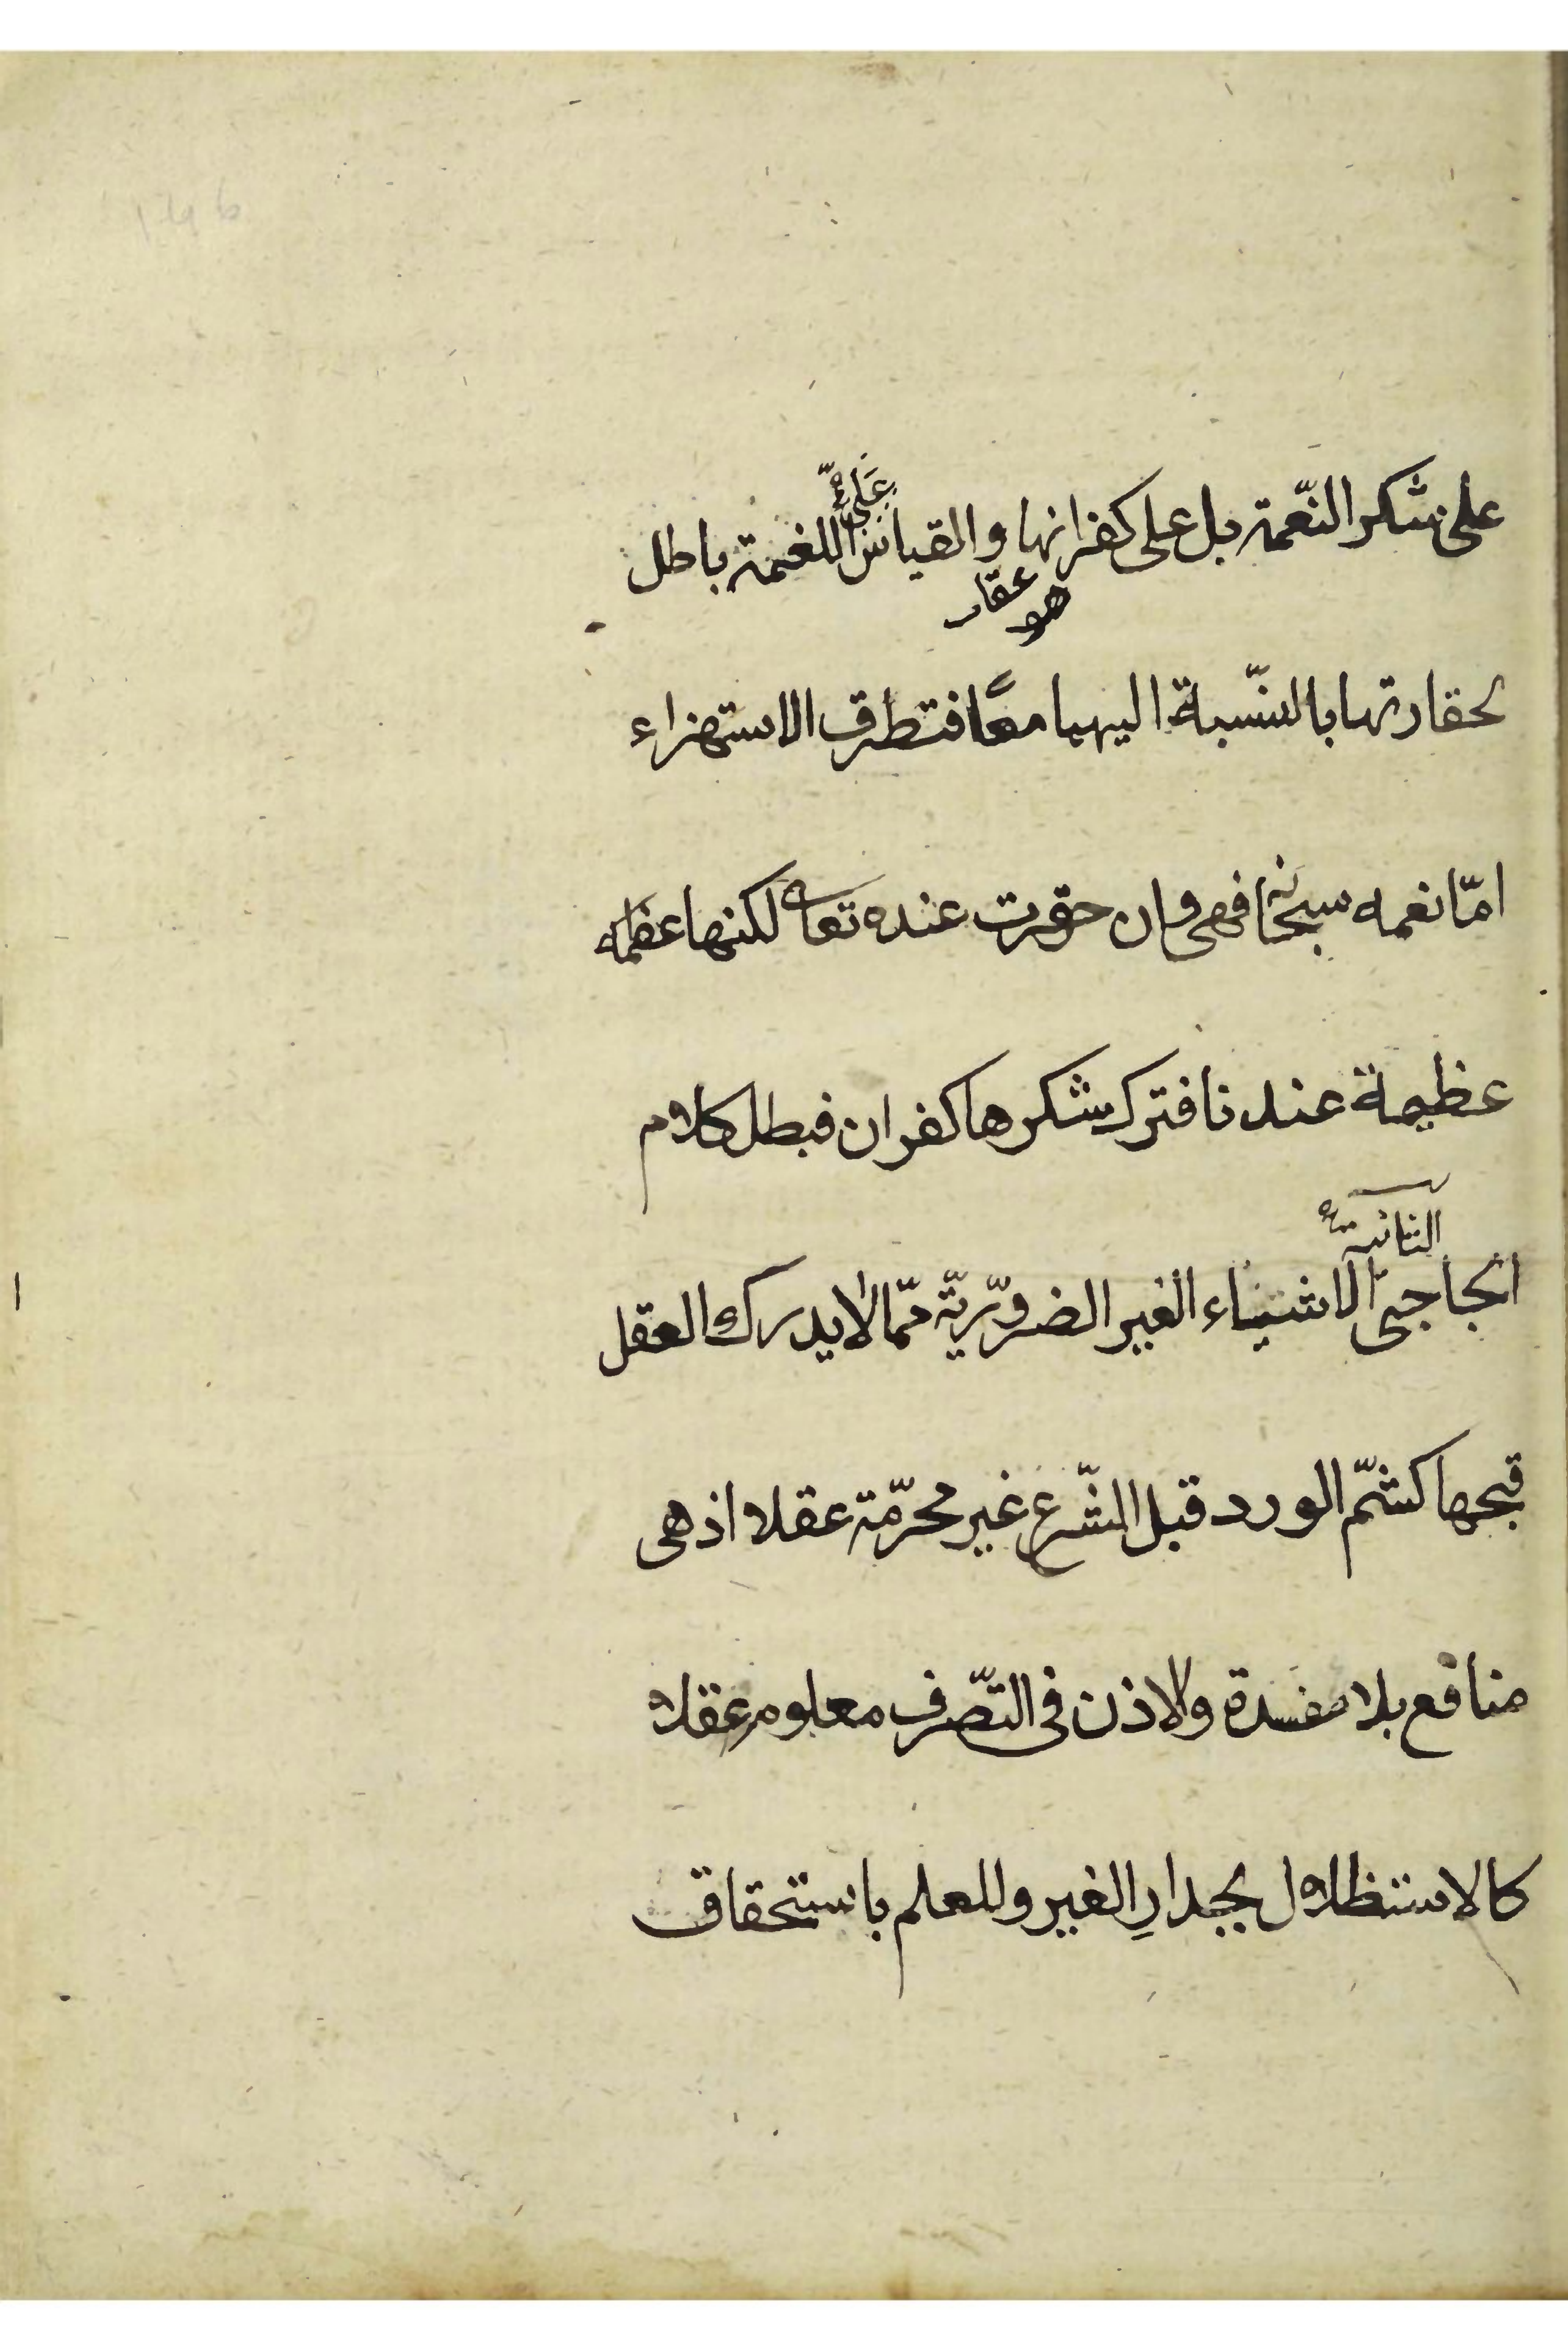 على شكر النّعمة بل على كفرانها والقياس على اللقمة باطل
هو عقار
لحقارتها بالنّسبة اليهما معًا فتطرق الاستهزاء
امّا نعمه سبحانه فهى وان حقرت عنده تعالى لكنها
عظيمة عندنا فترك شكرها كفران فبطل كلام
الثانية
الحاجبىّ الاشياء الغير الضروريّة ممّا لا يدرك العقل
قبحها كشمّ الورد قبل الشّرع غير محرّمة عقلا اذ هى
منافع بلا مفسدة والاذن فى التّصرف معلوم عقلا
كالاستظلال بجدارِ الغير وللعلم باستحقاق